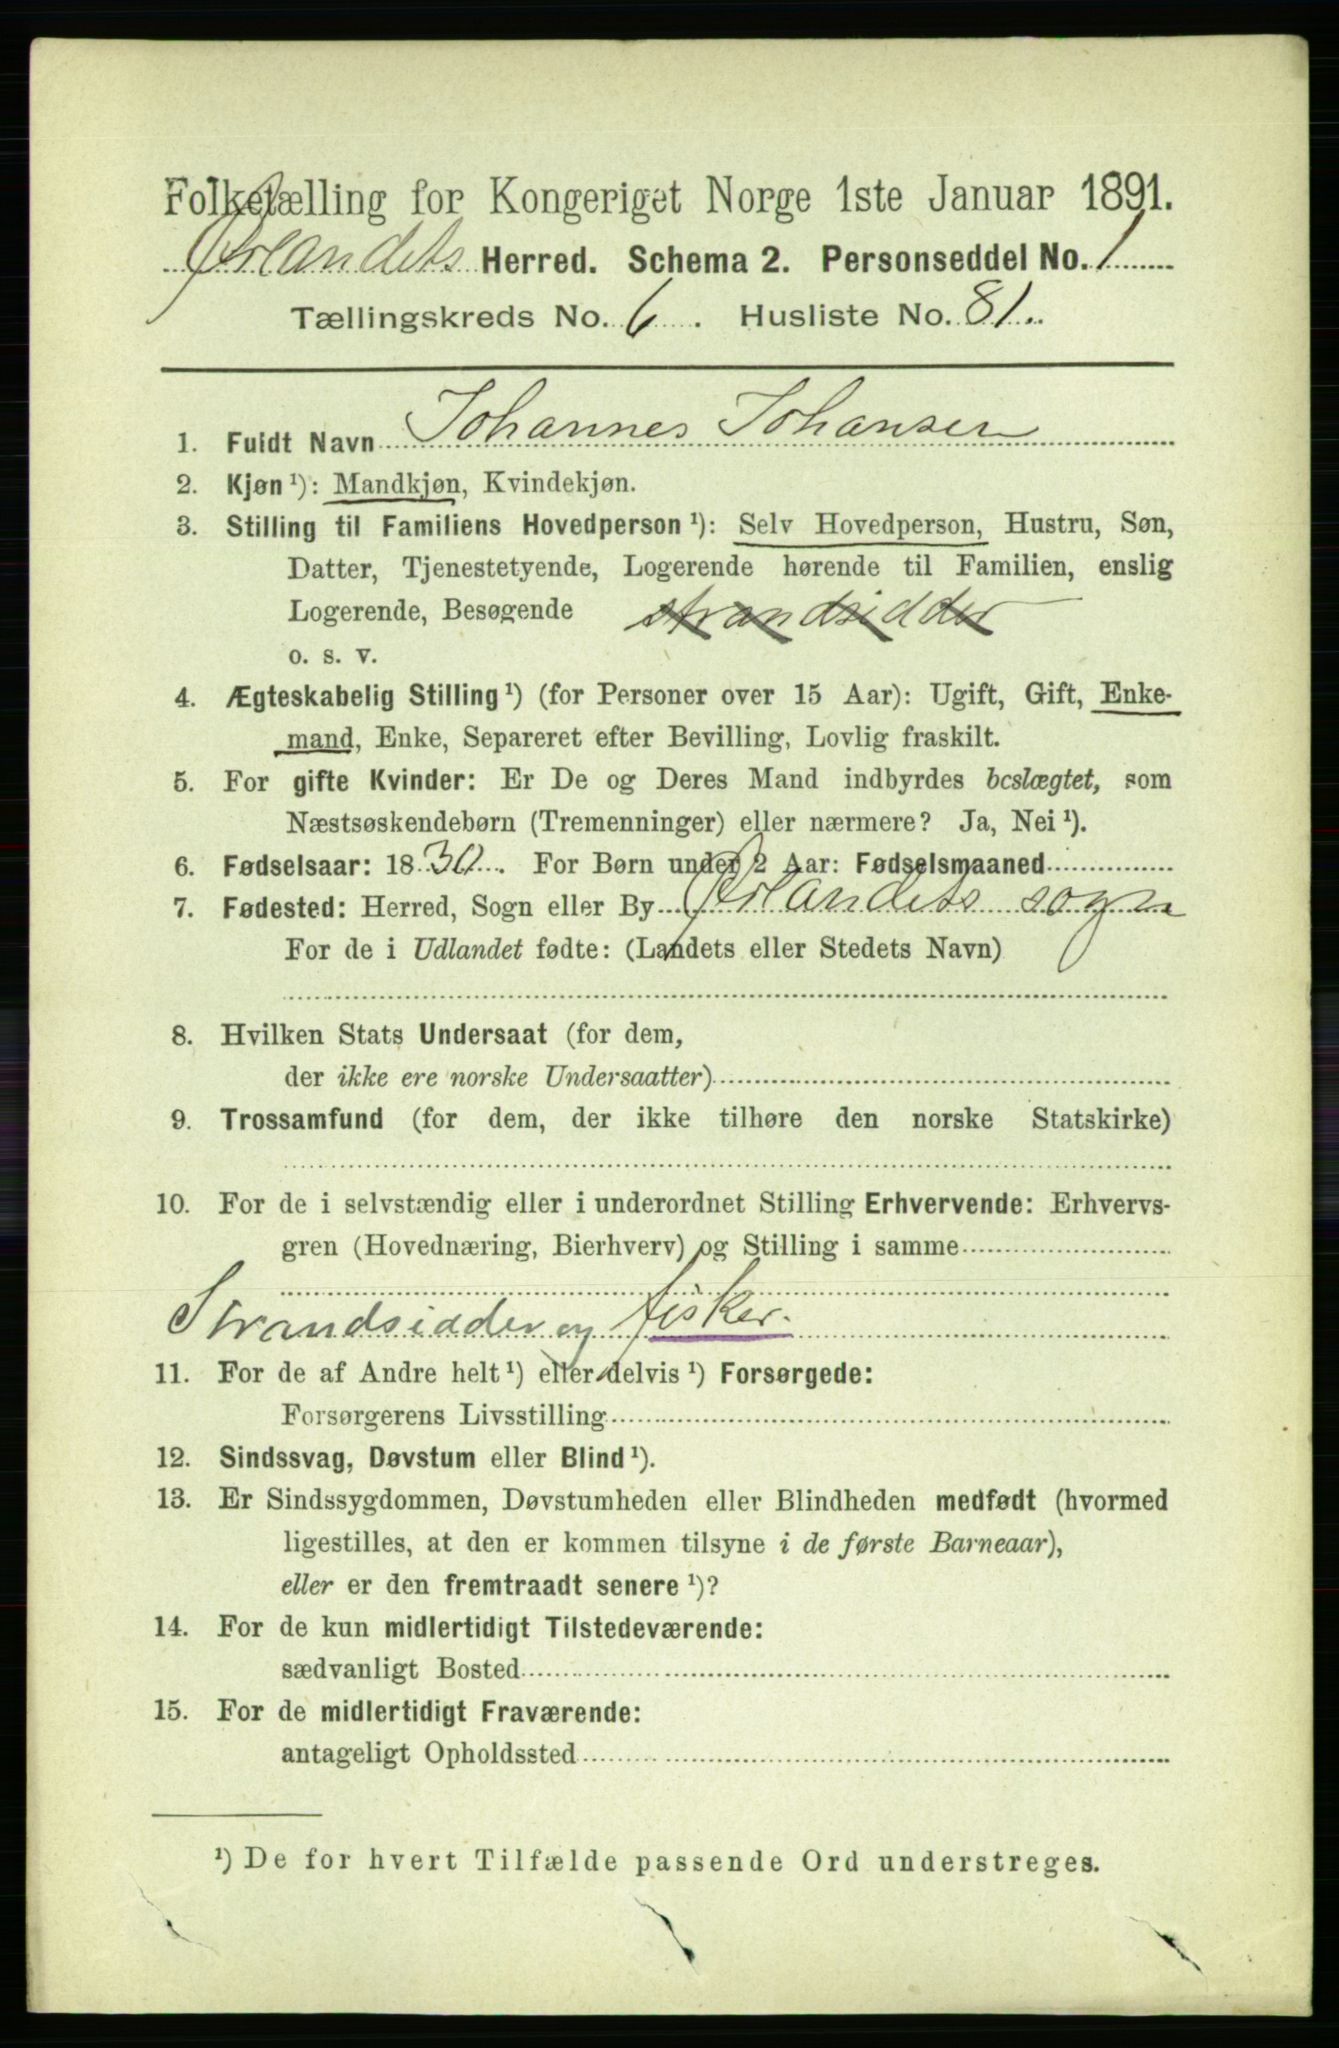 Folketælling for Kongeriget Norge 1ste Januar 1891.
Ørlandets Herred. Schema 2. Personseddel No. 1
Tællingskreds No. 6. Husliste No. 81.
1. Fuldt Navn Johannes Johansen
2. Kjøn¹): Mandkjøn, Kvindekjøn.
3. Stilling til Familiens Hovedperson¹): Selv Hovedperson, Hustru, Søn,
Datter, Tjenestetyende, Logerende hørende til Familien, enslig
Logerende, Besøgende strandsidder
o. s. v.
4. Ægteskabelig Stilling¹) (for Personer over 15 Aar): Ugift, Gift, Enke-
mand, Enke, Separeret efter Bevilling, Lovlig fraskilt.
5. For gifte Kvinder: Er De og Deres Mand indbyrdes beslægtet, som
Næstsøskendebørn (Tremenninger) eller nærmere? Ja, Nei¹).
6. Fødselsaar: 1830. For Børn under 2 Aar: Fødselsmaaned
7. Fødested: Herred, Sogn eller By Ørlandets sogn
For de i Udlandet fødte: (Landets eller Stedets Navn)
8. Hvilken Stats Undersaat (for dem,
der ikke ere norske Undersaatter)
9. Trossamfund (for dem, der ikke tilhøre den norske Statskirke)
10. For de i selvstændig eller i underordnet Stilling Erhvervende: Erhvervs-
gren (Hovednæring, Bierhverv) og Stilling i samme
Strandsidder og fisker.
11. For de af Andre helt¹) eller delvis¹) Forsørgede:
Forsørgerens Livsstilling
12. Sindssvag, Døvstum eller Blind¹).
13. Er Sindssygdommen, Døvstumheden eller Blindheden medfødt (hvormed
ligestilles, at den er kommen tilsyne i de første Barneaar),
eller er den fremtraadt senere¹)?
14. For de kun midlertidigt Tilstedeværende:
sædvanligt Bosted
15. For de midlertidigt Fraværende:
antageligt Opholdssted
¹) De for hvert Tilfælde passende Ord understreges.